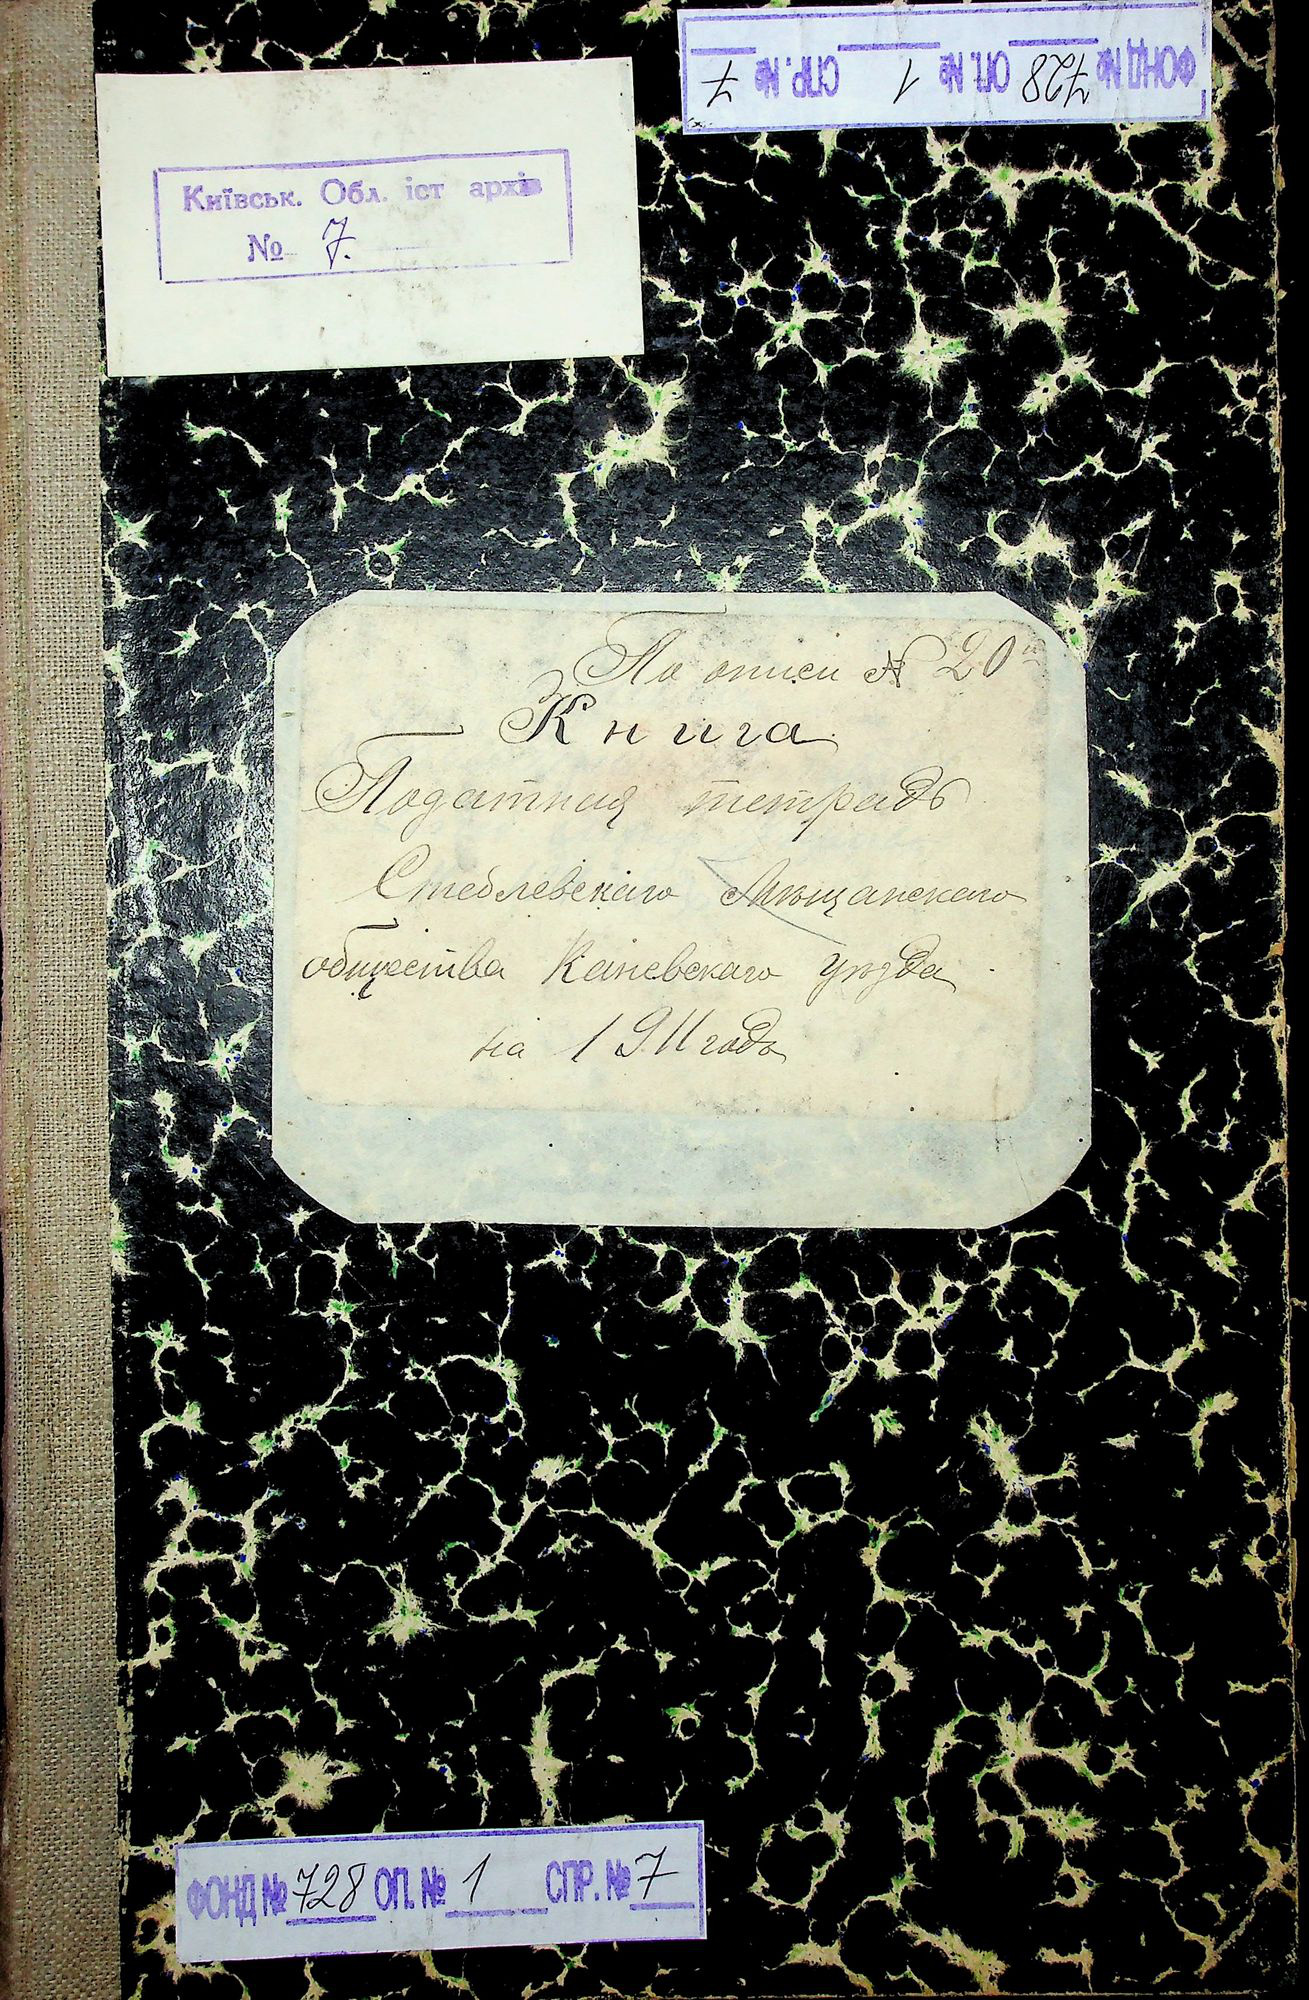 ФОНД № 728 ОП. № 1 СПР. № 7
Київськ. Обл. іст архів
№ 7.
По описи № 20й
Книга
Податная тетрадь
Стеблевскаго Мѣщанскаго
общества Каневскаго уѣзда
на 1911 годъ
ФОНД № 728 ОП. № 1 СПР. № 7